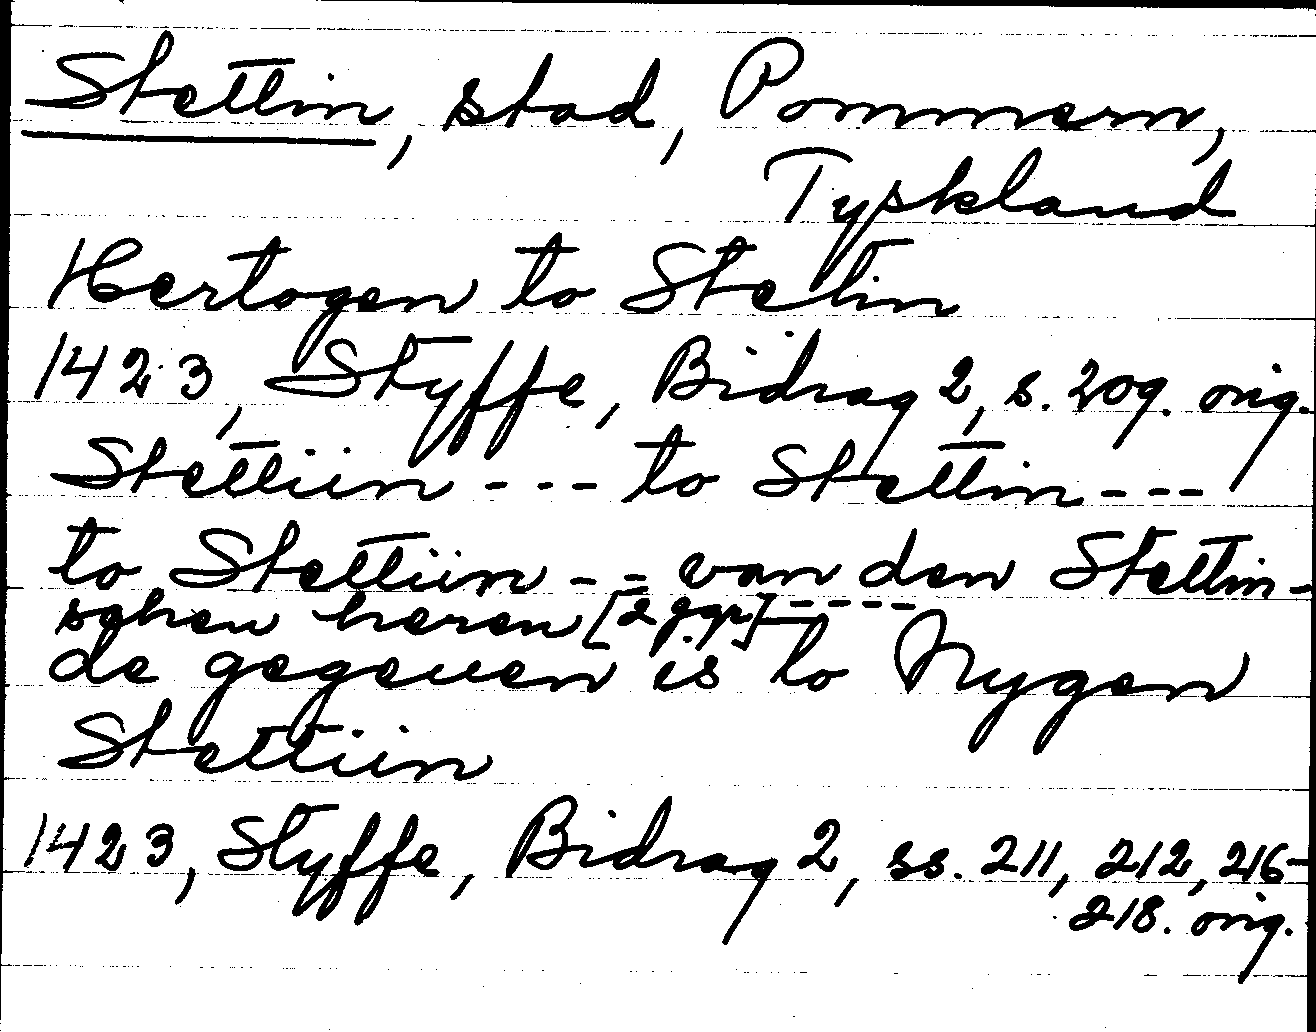 Stettin, stad, Pommern,
Tyskland
Hertogen to Stetin
1423, Styffe, Bidrag 2, s. 209. orig.
Stettiin --- to Stettin ---
to Stettiin -- van den Stettin-
schen heren [2 ggr] ----
de gegeuen is to Nygen
Stettiin
1423, Styffe, Bidrag 2, ss. 211, 212, 216-
218. orig.